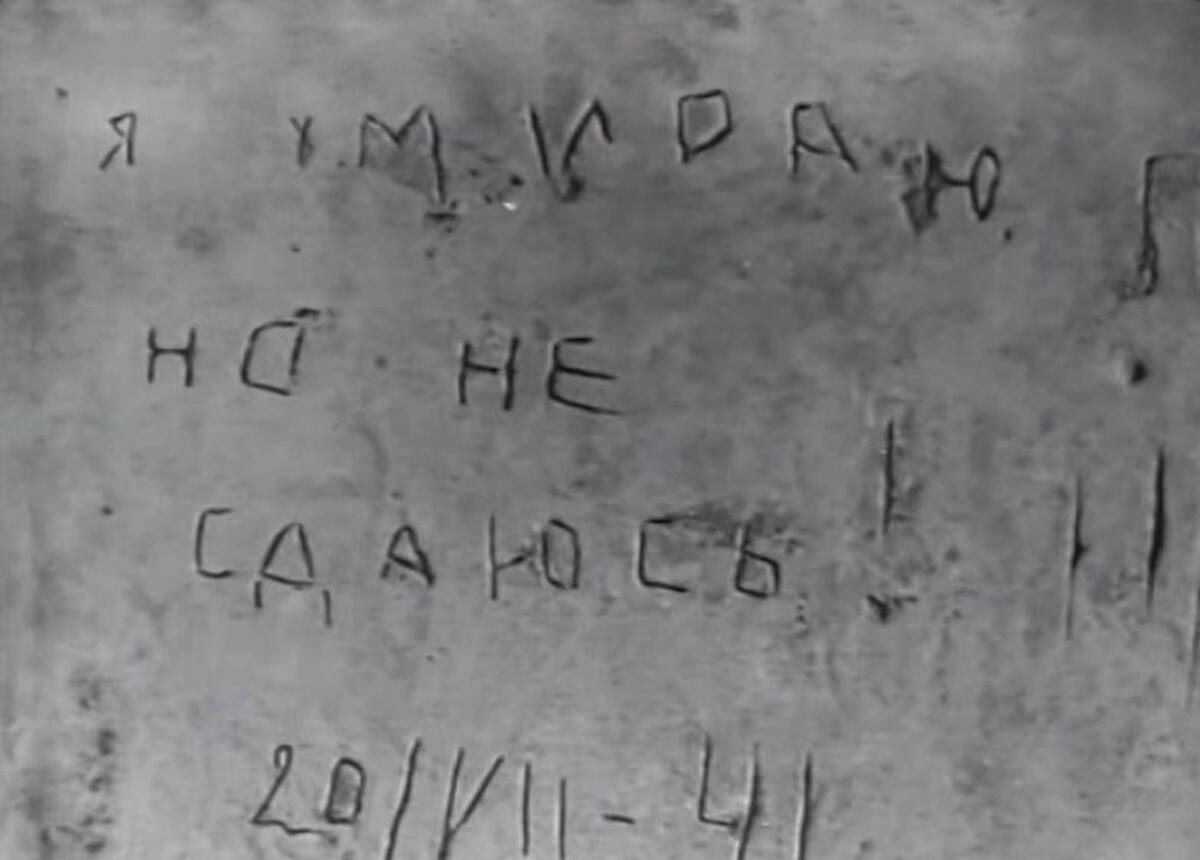 Я УМИРАЮ. П
НО НЕ
СДАЮСЬ!
20/VII-41